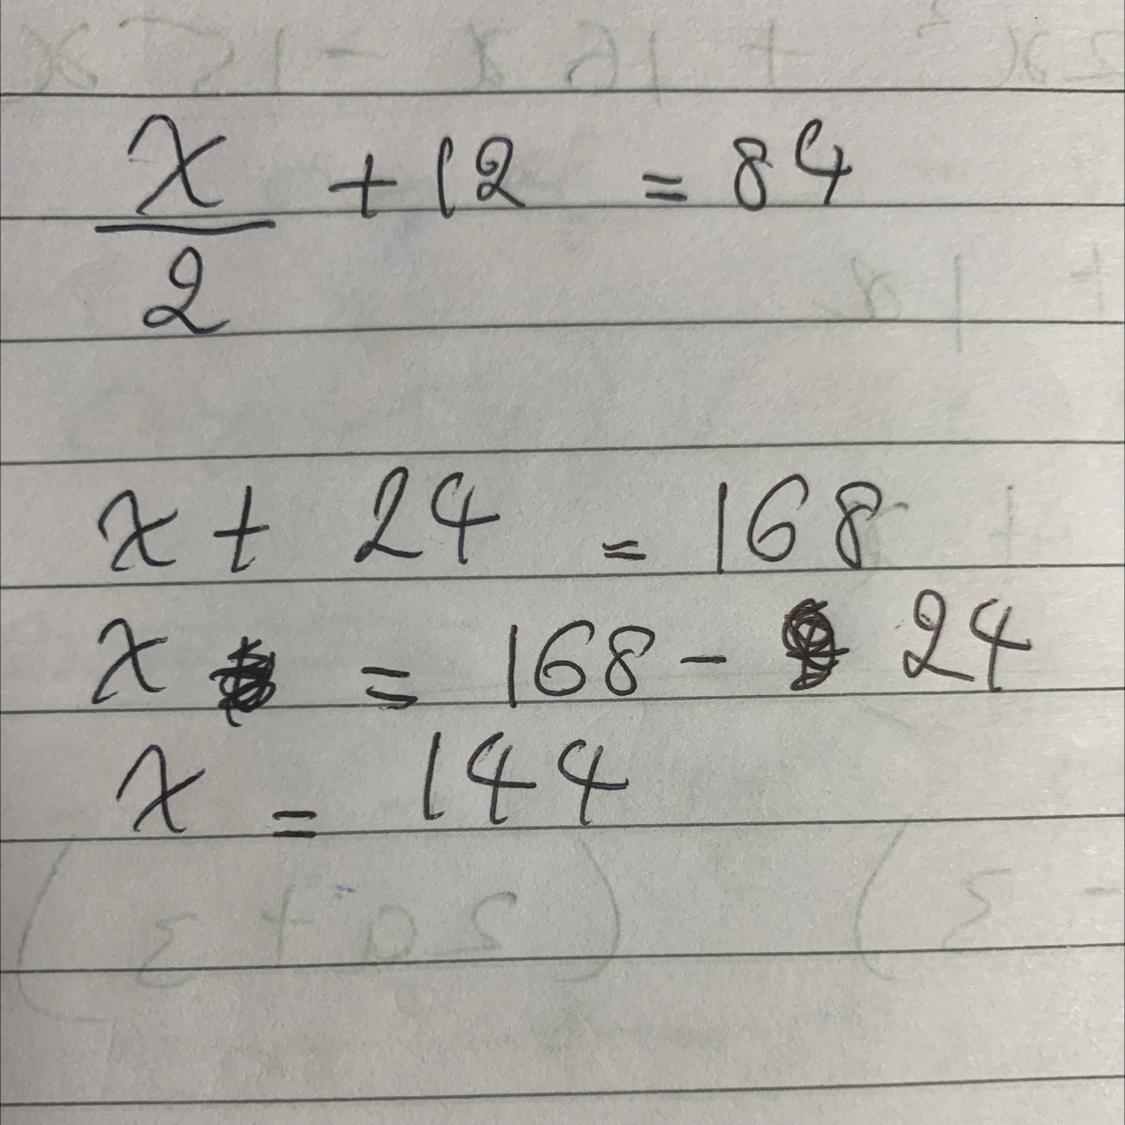 x/2 + 12 = 84
x + 24 = 168
x = 168 - 24
x = 144